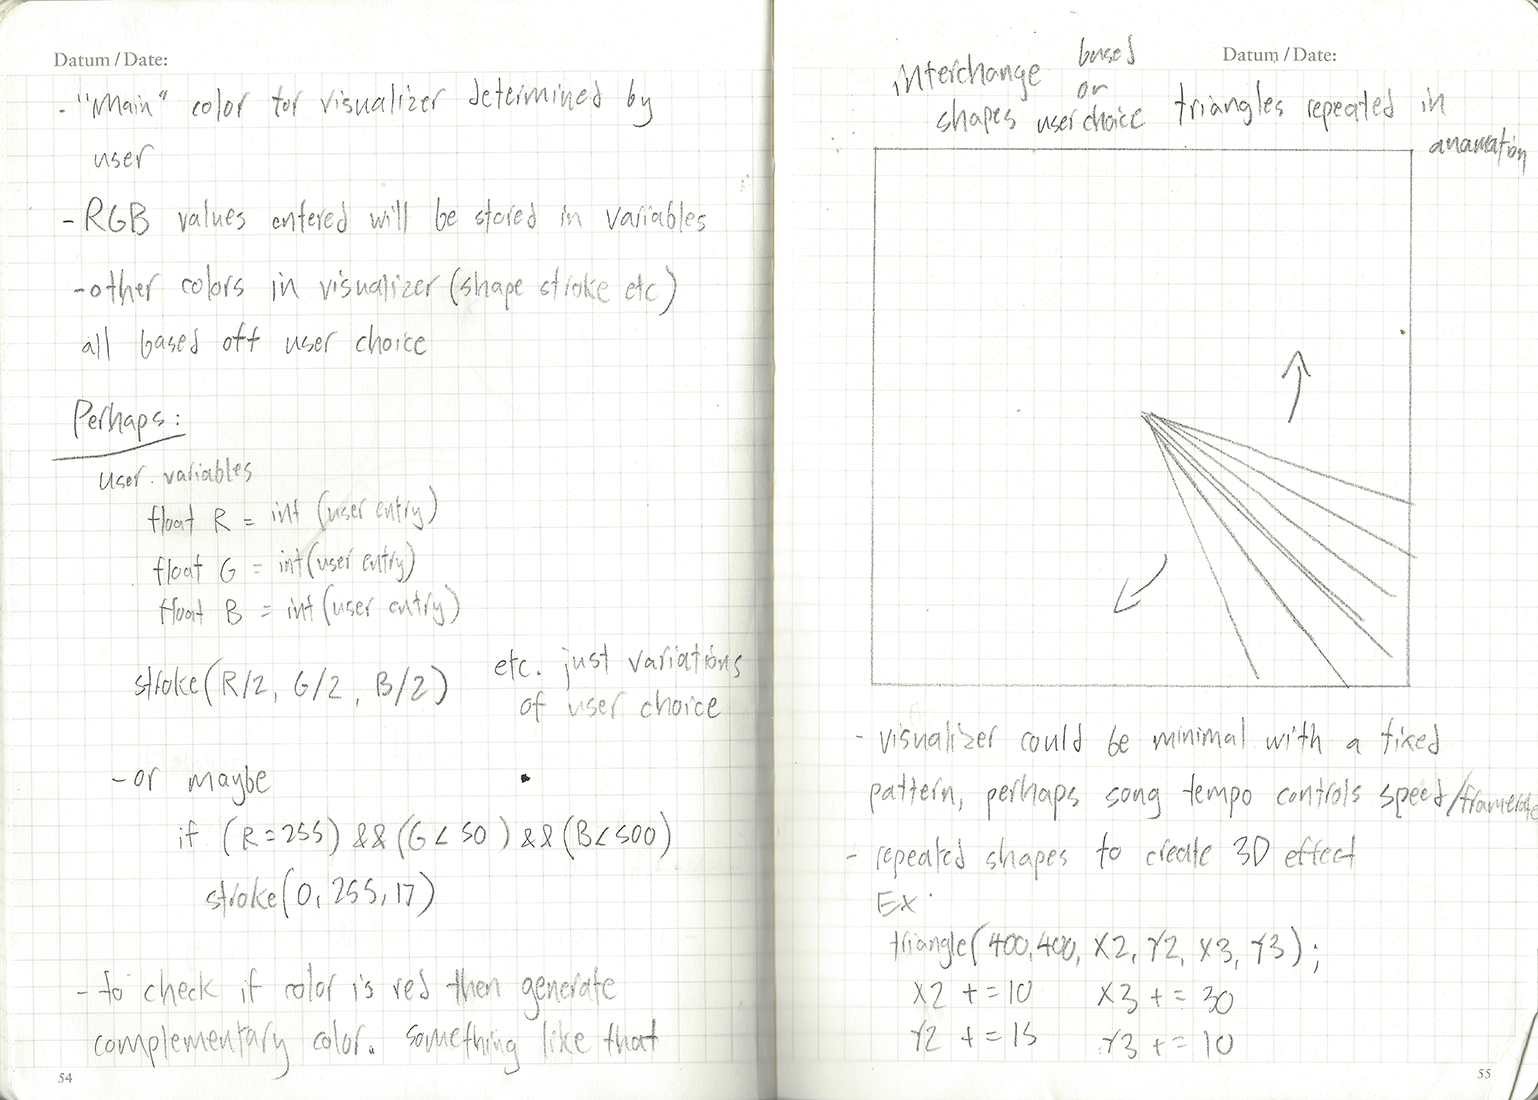 Datum / Date:
- "Main" color for visualizer determined by
user
- RGB values entered will be stored in variables
- other colors in visualizer (shape stroke etc)
all based off user choice
Perhaps:
user variables
float R = int (user entry)
float G = int (user entry)
float B = int (user entry)
stroke (R/2, G/2, B/2)
etc. just variations
of user choice
- or maybe
if (R=255) && (G < 50) && (B<500)
stroke (0, 255, 17)
- to check if color is red then generate
complementary color. something like that
54
Datum / Date:
interchange
shapes
based
on
user choice
triangles repeated in
anamation
- visualizer could be minimal with a fixed
pattern, perhaps song tempo controls speed/framerate
- repeated shapes to create 3D effect
Ex.
triangle(400,400, X2, Y2, X3, Y3);
X2 += 10 X3 += 30
Y2 += 15 Y3 += 10
55